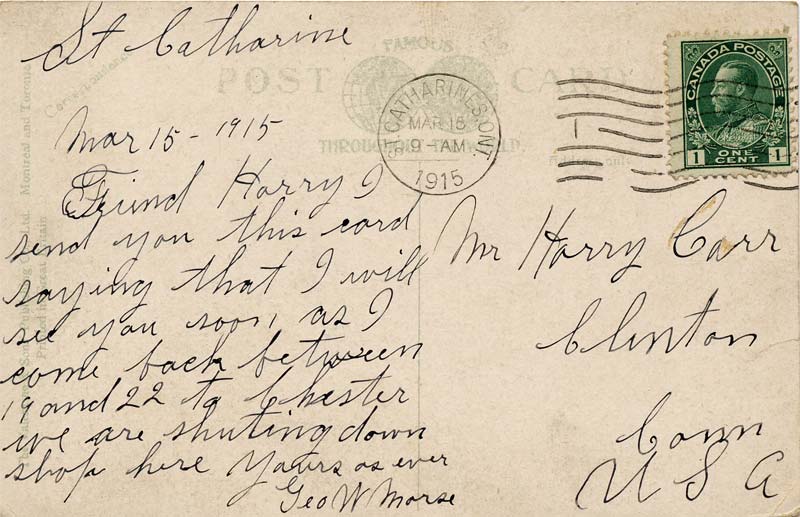 St Catharine
Mar 15 - 1915
Friend Harry I
send you this card
saying that I will
see you soon, as I
come back between
19 and 22 to Chester
we are shuting down
shop here Yours as ever
Geo W Morse
FAMOUS
POST CARD
THROUGHOUT THE WORLD.
ST. CATHARINES, ONT.
MAR 15
9-AM
1915
CANADA POSTAGE
1 ONE CENT 1
Mr Harry Carr
Clinton
Conn
U S A
Correspondence
Address only
Ltd. Montreal and Toronto
Printed in Great Britain